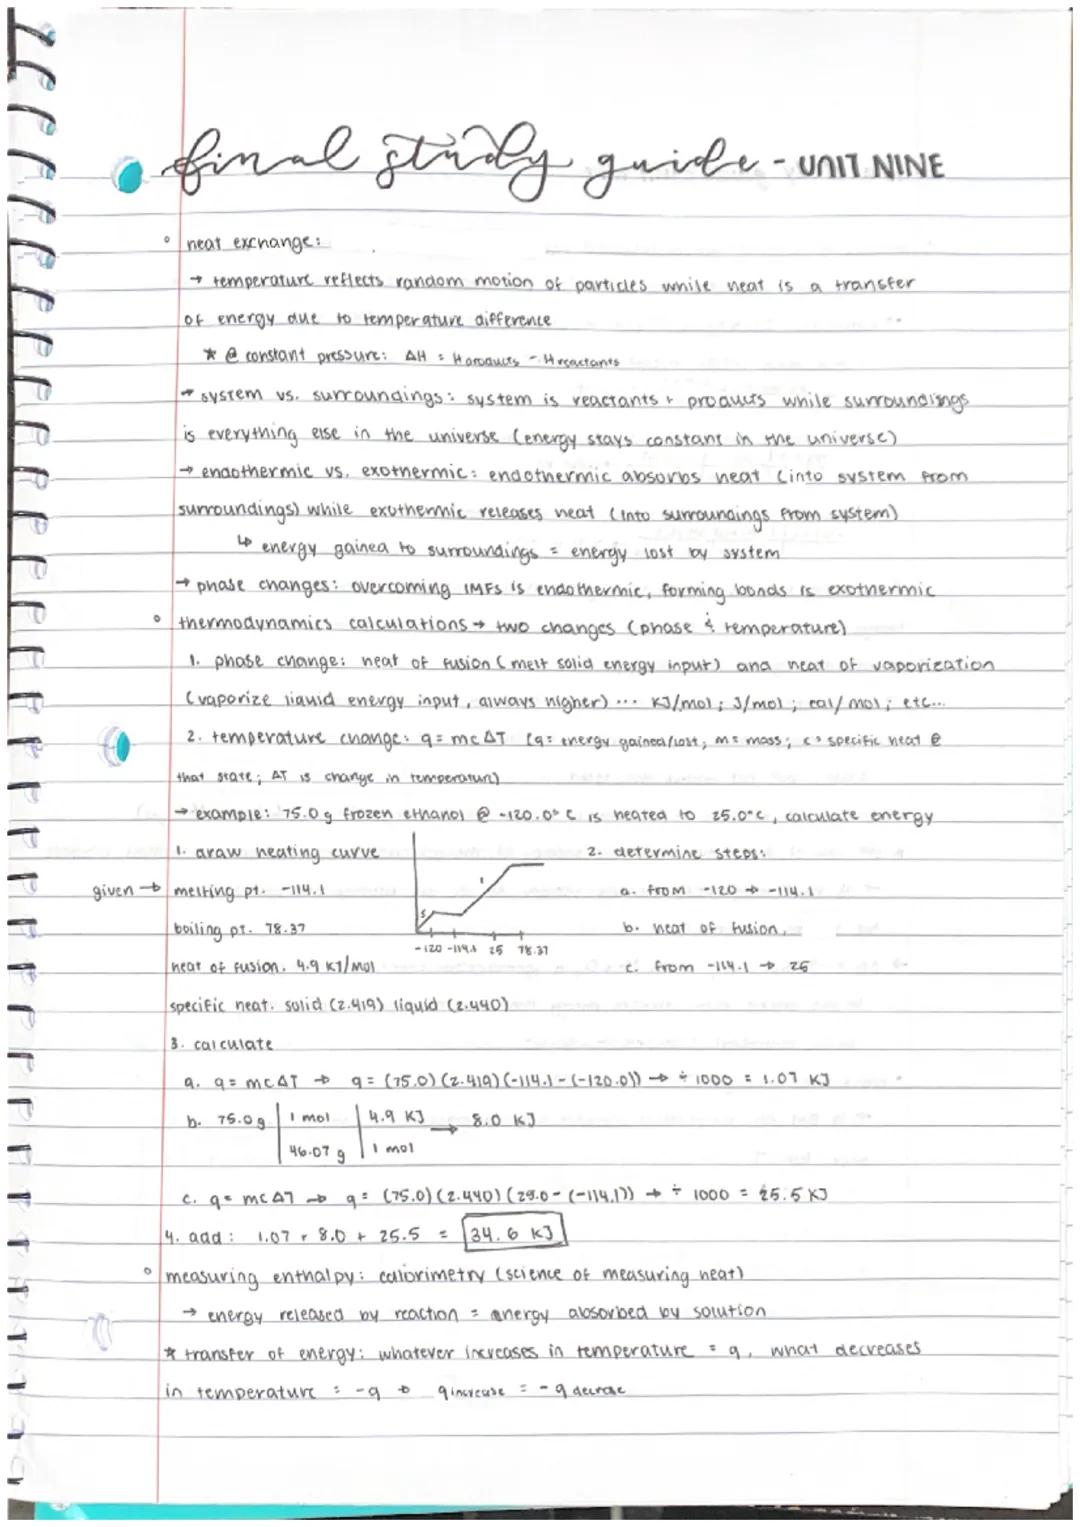 final study guide - UNIT NINE
° heat exchange:
→ temperature reflects random motion of particles while heat is a transfer
of energy due to temperature difference
* @ constant pressure: ΔH = Hproducts - Hreactants
→ system vs. surroundings: system is reactants + products while surroundings
is everything else in the universe (energy stays constant in the universe)
→ endothermic vs. exothermic: endothermic absorbs heat (into system from
surroundings) while exothermic releases heat (into surroundings from system)
↳ energy gained to surroundings = energy lost by system
→ phase changes: overcoming IMFs is endothermic, forming bonds is exothermic
° thermodynamics calculations → two changes (phase & temperature)
1. phase change: heat of fusion (melt solid energy input) and heat of vaporization
(vaporize liquid energy input, always higher) ... KJ/mol; J/mol; cal/mol; etc...
2. temperature change: q = mcΔT (q = energy gained/lost; m = mass; c = specific heat @
that state; ΔT is change in temperature)
→ example: 75.0 g frozen ethanol @ -120.0°C is heated to 25.0°C, calculate energy
1. draw heating curve
2. determine steps:
given → melting pt. -114.1
a. from -120 → -114.1
boiling pt. 78.37
b. heat of fusion
s
l
-120 -114.1 25 78.37
heat of fusion. 4.9 KJ/mol
c. from -114.1 → 25
specific heat. solid (2.419) liquid (2.440)
3. calculate
a. q = mcΔT → q = (75.0)(2.419)(-114.1-(-120.0)) → ÷ 1000 = 1.07 KJ
b. 75.0g | 1 mol | 4.9 KJ → 8.0 KJ
46.07 g | 1 mol
c. q = mcΔT → q = (75.0)(2.440)(25.0-(-114.1)) → ÷ 1000 = 25.5 KJ
4. add: 1.07 + 8.0 + 25.5 = 34.6 KJ
° measuring enthalpy: calorimetry (science of measuring heat)
→ energy released by reaction = energy absorbed by solution
* transfer of energy: whatever increases in temperature = q, what decreases
in temperature = -q → q increase = -q decrease